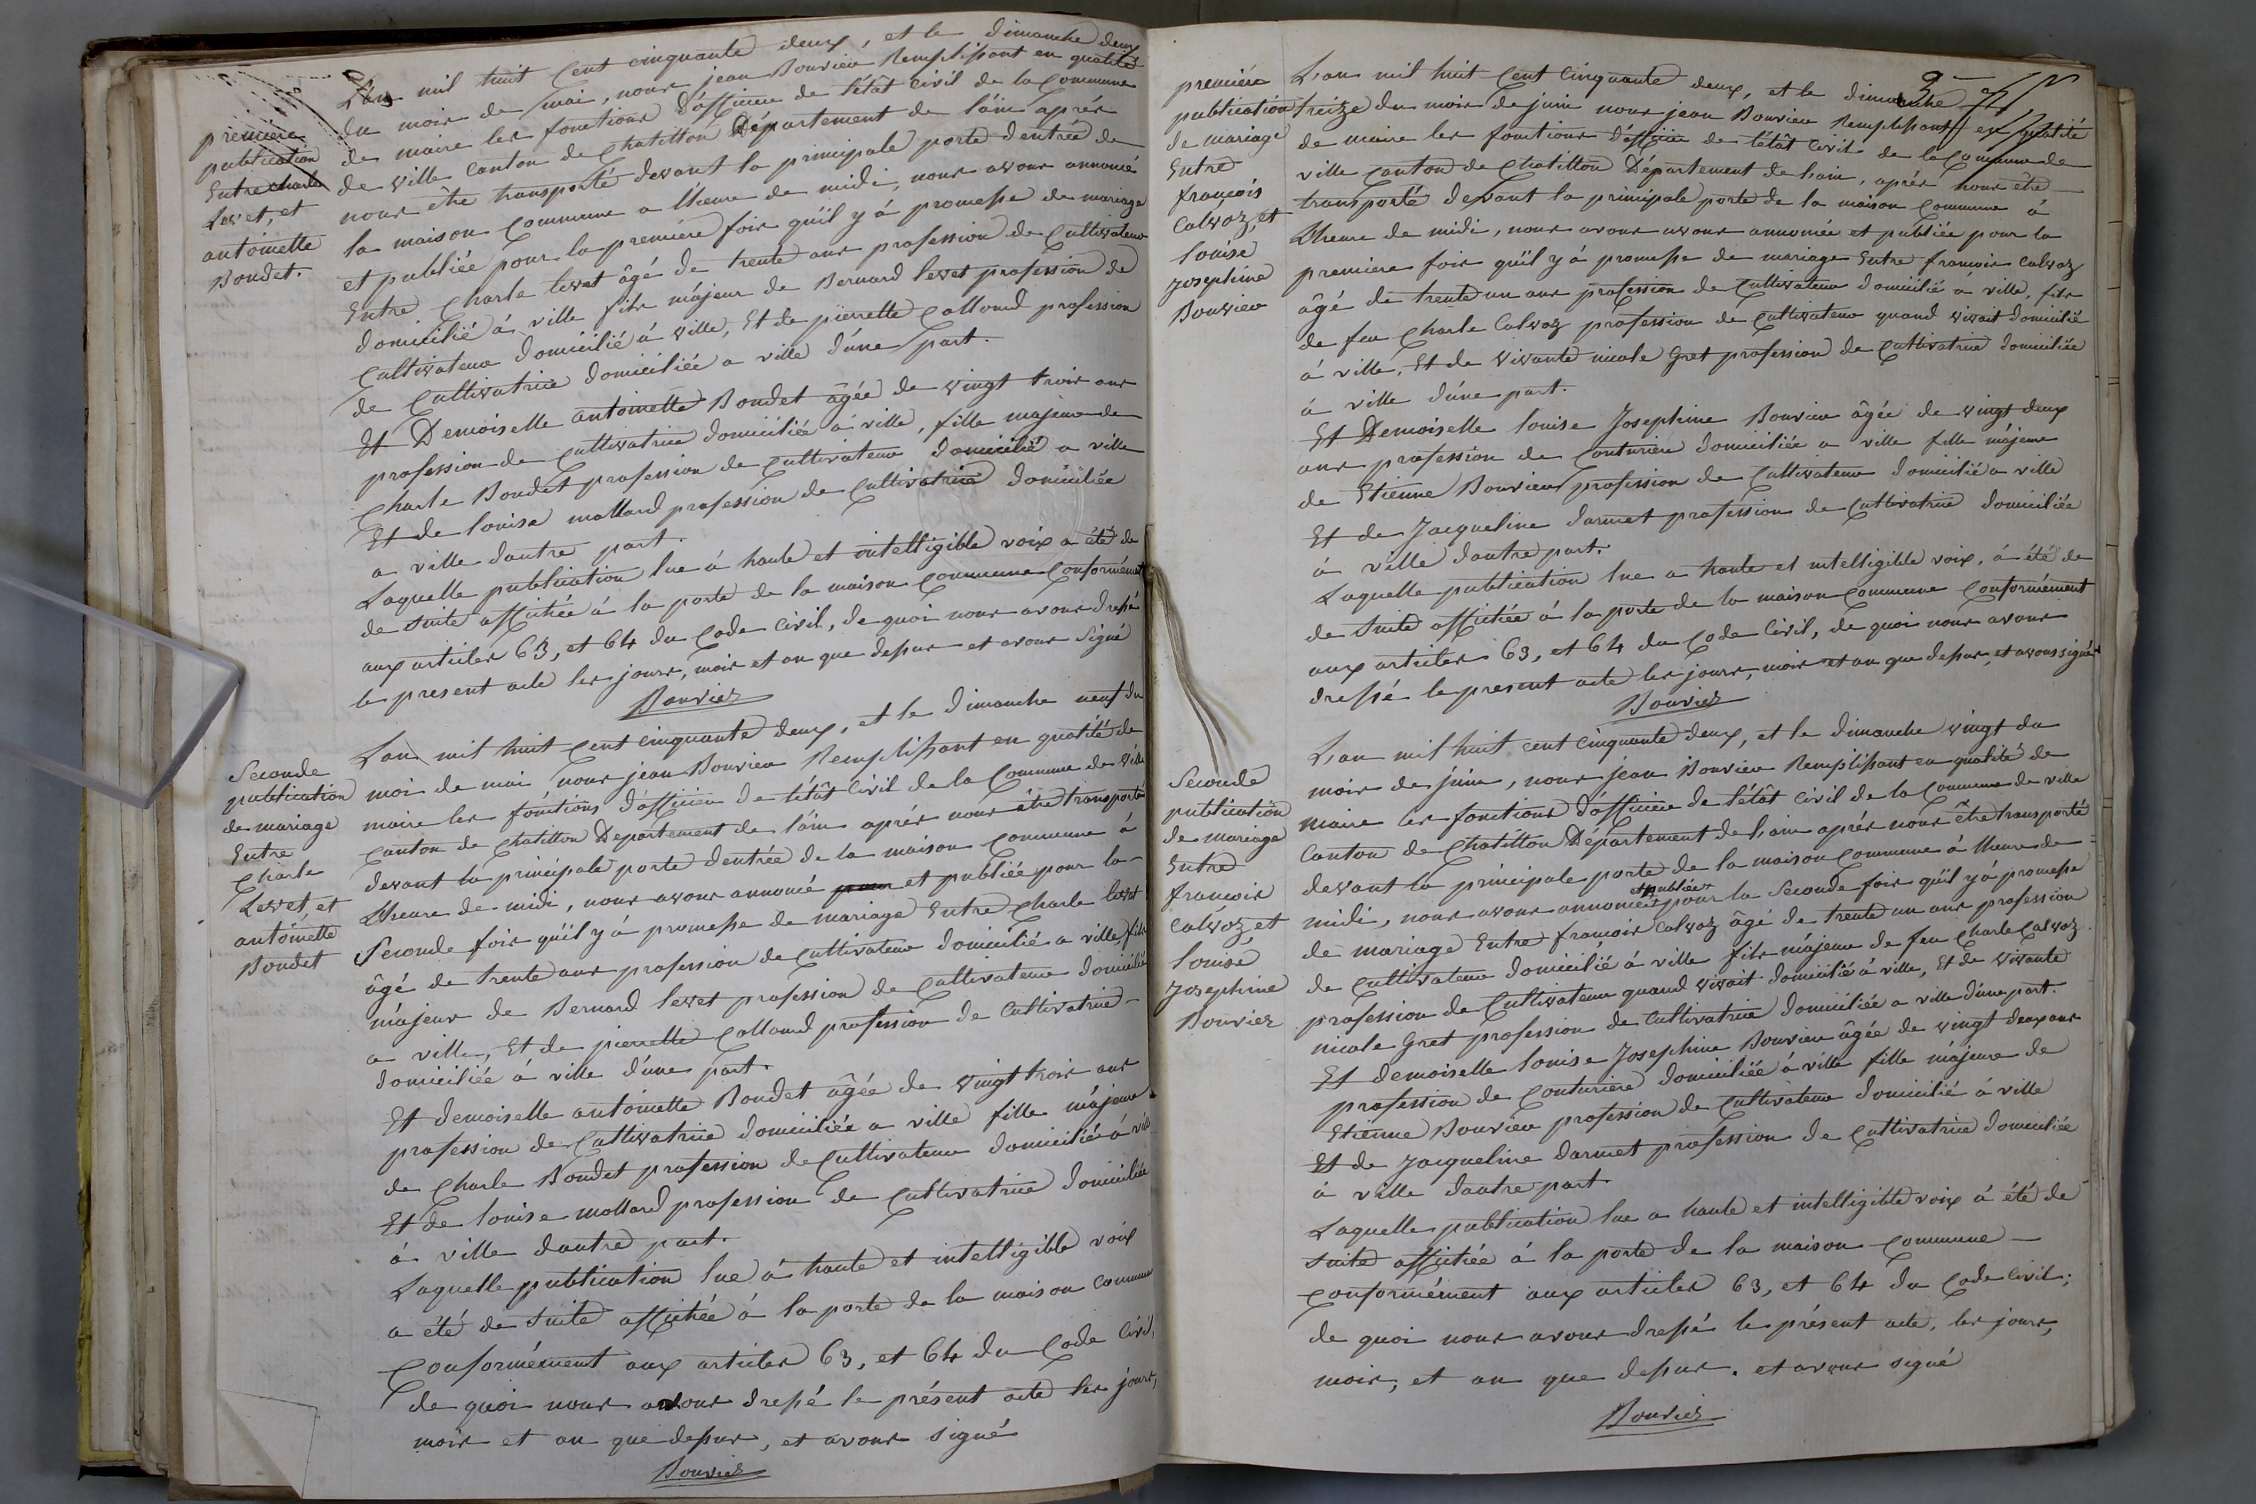 première
publication
Entre charle
Levet, et
antoinette
Boudet.
L'an mil huit Cent cinquante deux, et le dimanche deux
du mois de mai, nous jean Bouvier Remplissant en qualité
de maire les fonctions d'officier de l'état Civil de la Commune
de Ville Canton de Chatillon Département de l'ain après
nous être transporté devant la principale porte d'entrée de
la maison Commune a l'heure de midi, nous avons annoncé
et publiée pour la première fois qu'il y á promesse de mariage
Entre Charle levet âgé de trente ans profession de Cultivateur
domicilié á ville fils májeur de Bernard levet profession de
Cultivateur domicilié à ville, Et de pierrette Collomd profession
de Cultivatrice domiciliée a ville d'une part.
Et Demoiselle antoinette Boudet âgée de vingt trois ans
profession de cultivatrice domiciliée à ville, fille majeure de
Charle Boudet profession de Cultivateur domicilié a ville
Et de louise mollard profession de Cultivatrice domiciliée
a ville dautre part.
Laquelle publication lue á haute et intelligible voix a été de
de suite affichée á la porte de la maison Commune Conformément
aux articles 63, et 64 du Code Civil, de quoi nous avons dressé
le present acte les jours, mois et an que dessus et avons Signé
Bouvier
Seconde
publication
de mariage
Entre
Charle
Levet, et
antoinette
Boudet
L'an mil huit Cent cinquante deux, et le dimanche neuf du
moi de mai nous jean Bouvier Remplissant en qualité de
maire les fonctions d'officier de l'état Civil de la Commune de ville
Canton de Chatillon Departement de l'ain après nous être transporté
devant la principale porte d'entrée de la maison Commune á
L'heure de midi, nous avons annoncé et publiée pour la
Seconde fois qu'il y á promesse de mariage Entre Charle levet
âgé de trente ans profession de Cultivateur domicilié a ville fils
májeur de Bernard levet profession de Cultivateur domicilié
a ville, Et de pierrette Collomd profession de Cultivatrice
domiciliée á ville d'une part.
Et demoiselle antoinette Boudet âgée de vingt trois ans
profession de Cultivatrice domiciliée a ville fille májeure
de Charle Boudet profession de Cultivateur domicilié á ville
Et de louise mollard profession de Cultivatrice domiciliée
á ville dautre part.
Laquelle publication lue á haute et intelligible voix
a été de suite affichée á la porte de la maison Commune
Conformément aux articles 63, et 64 du Code Civil,
de quoi nous avons dressé le présent acte les jours,
mois et an que dessus, et avons signé
Bouvier
première
publication
de mariage
Entre
françois
Calvoz, et
louise
Josephine
Bouvier
L'an mil huit Cent Cinquante deux, et le dimanche
treize du mois de juin nous jean Bouvier Remplissant en qualité
de maire les fonctions d'officier de l'état Civil de la Commune de
ville Canton de Chatillon Département de l'ain, aprés nous être
transporté devant la principale porte de la maison Commune à
L'heure de midi, nous avons avons annoncée et publiée pour la
premiere fois qu'il y á promesse de mariage Entre françois Calvoz
âgé de trente un ans profession de Cultivateur domicilié á ville, fils
de feu Charle Calvoz profession de Cultivateur quand vivait domicilié
á ville, Et de vivante nicole Gret profession de Cultivatrice domiciliée
á ville d'une part.
Et Demoiselle louise Josephine Bouvier âgée de vingt deux
ans profession de Couturiere domiciliée a ville fille májeure
de Etienne Bouvier profession de Cultivateur domicilié a ville
Et de Jacqueline darmet profession de Cultivatrice domiciliée
á ville dautre part.
Laquelle publication lue a haute et intelligible voix, á été de
de suite affichée á la porte de la maison Commune Conformément
aux articles 63, et 64 du Code Civil, de quoi nous avons
dressé le present acte les jours, mois et an que dessus, et avons signé
Bouvier
Seconde
publication
de mariage
Entre
françois
Calvoz, et
louise
Josephine
Bouvier
L'an mil huit cent Cinquante deux, et le dimanche vingt du
mois de juin, nous jean Bouvier Remplissant en qualité de
maire les fonctions d'officier de l'état Civil de la Commune de ville
Canton de Chatillon Département de l'ain aprés nous être transporté
devant la principale porte de la maison Commune á l'heure de
midi, nous avons annoncée et publiée pour la Seconde fois qu'il y á promesse
de mariage Entre françois Calvoz âgé de trente un ans profession
de Cultivateur domicilié á ville fils májeur de feu Charle Calvoz
profession de Cultivateur quand vivait domicilié á ville, Et de vivante
nicole Gret profession de Cultivatrice domiciliée a ville d'une part.
Et demoiselle louise Josephine Bouvier âgée de vingt deux ans
profession de Couturiere domiciliée á ville fille májeure de
Etienne Bouvier profession de Cultivateur domicilié á ville
Et de Jacqueline darmet profession de Cultivatrice domiciliée
á ville dautre part.
Laquelle publication lue a haute et intelligible voix á été de
suite affichée á la porte de la maison Commune
Conformément aux articles 63, et 64 du Code Civil;
de quoi nous avons dressé le présent acte, les jours,
mois, et an que dessus, et avons signé
Bouvier